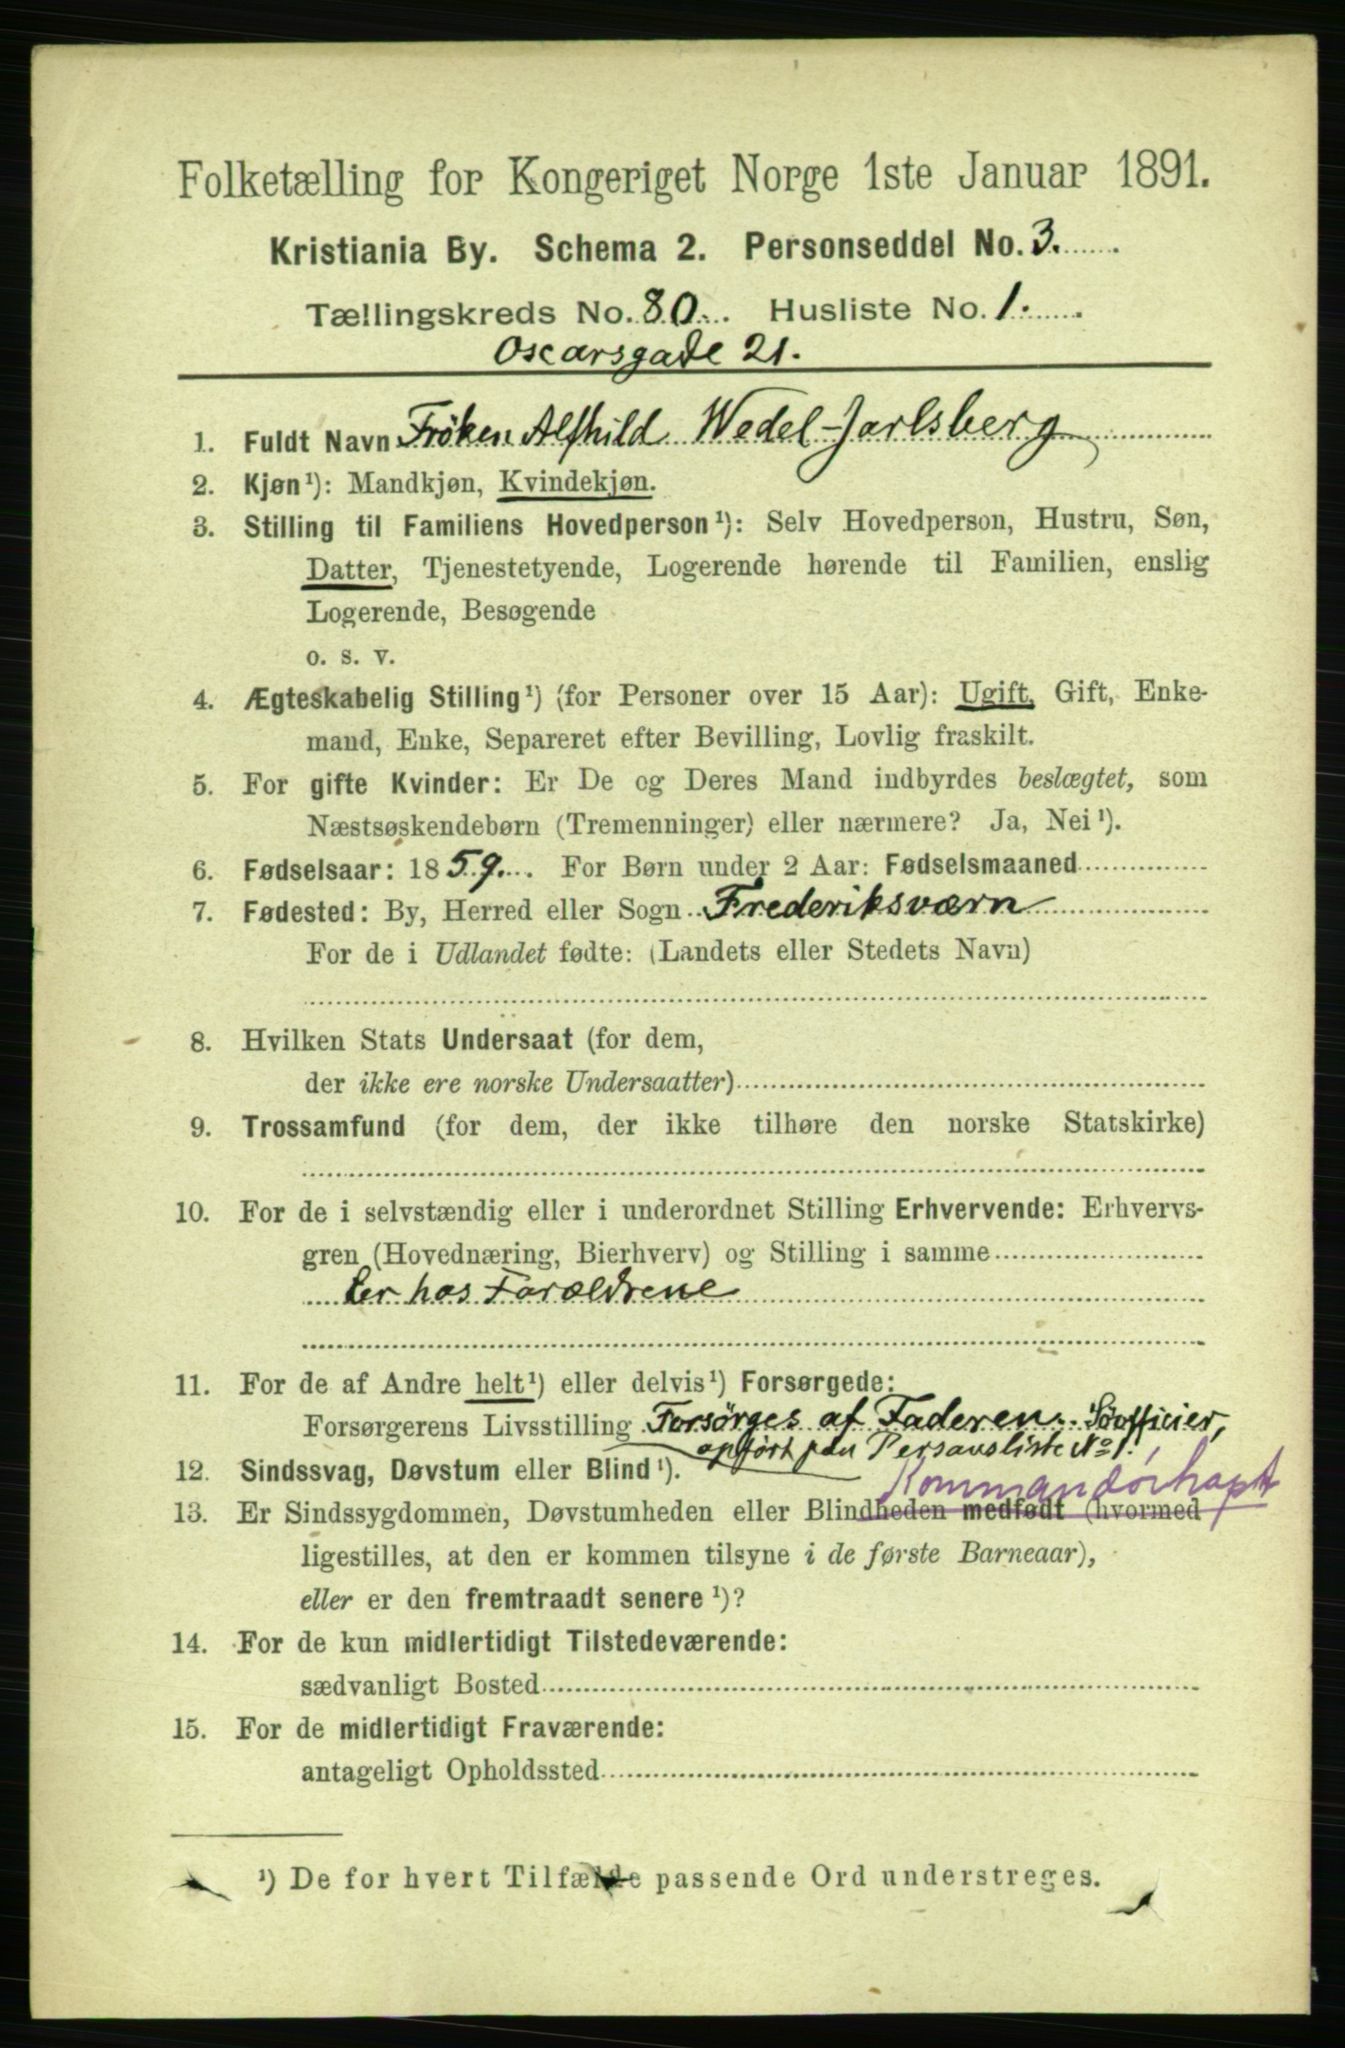 Folketælling for Kongeriget Norge 1ste Januar 1891.
Kristiania By. Schema 2. Personseddel No. 3.
Tællingskreds No. 80. Husliste No. 1.
Oscarsgade 21.
1. Fuldt Navn Frøken Alfhild Wedel-Jarlsberg
2. Kjøn¹): Mandkjøn, Kvindekjøn.
3. Stilling til Familiens Hovedperson¹): Selv Hovedperson, Hustru, Søn,
Datter, Tjenestetyende, Logerende hørende til Familien, enslig
Logerende, Besøgende
o. s. v.
4. Ægteskabelig Stilling¹) (for Personer over 15 Aar): Ugift, Gift, Enke-
mand, Enke, Separeret efter Bevilling, Lovlig fraskilt.
5. For gifte Kvinder: Er De og Deres Mand indbyrdes beslægtet, som
Næstsøskendebørn (Tremenninger) eller nærmere? Ja, Nei¹).
6. Fødselsaar: 1859. For Børn under 2 Aar: Fødselsmaaned
7. Fødested: By, Herred eller Sogn Frederiksværn
For de i Udlandet fødte: (Landets eller Stedets Navn)
8. Hvilken Stats Undersaat (for dem,
der ikke ere norske Undersaatter)
9. Trossamfund (for dem, der ikke tilhøre den norske Statskirke)
10. For de i selvstændig eller i underordnet Stilling Erhvervende: Erhvervs-
gren (Hovednæring, Bierhverv) og Stilling i samme
Er hos Forældrene
11. For de af Andre helt¹) eller delvis¹) Forsørgede:
Forsørgerens Livsstilling Forsørges af Faderen. Søofficier,
opført paa Personsliste No 1.
12. Sindssvag, Døvstum eller Blind¹).
Kommandørkapt
13. Er Sindssygdommen, Døvstumheden eller Blindheden medfødt (hvormed
ligestilles, at den er kommen tilsyne i de første Barneaar),
eller er den fremtraadt senere¹)?
14. For de kun midlertidigt Tilstedeværende:
sædvanligt Bosted
15. For de midlertidigt Fraværende:
antageligt Opholdssted
¹) De for hvert Tilfælde passende Ord understreges.